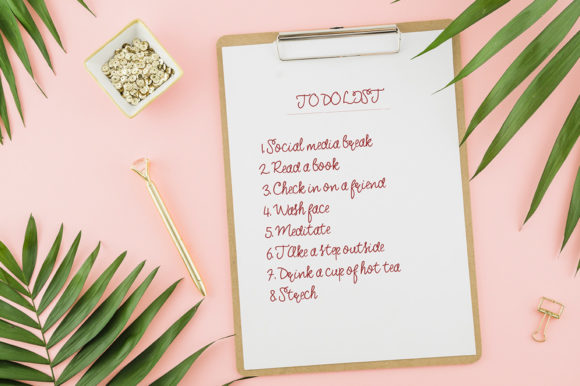 TO DO LIST
1. Social media break
2. Read a book
3. Check in on a friend
4. Wash face
5. Meditate
6. Take a step outside
7. Drink a cup of hot tea
8. Strech